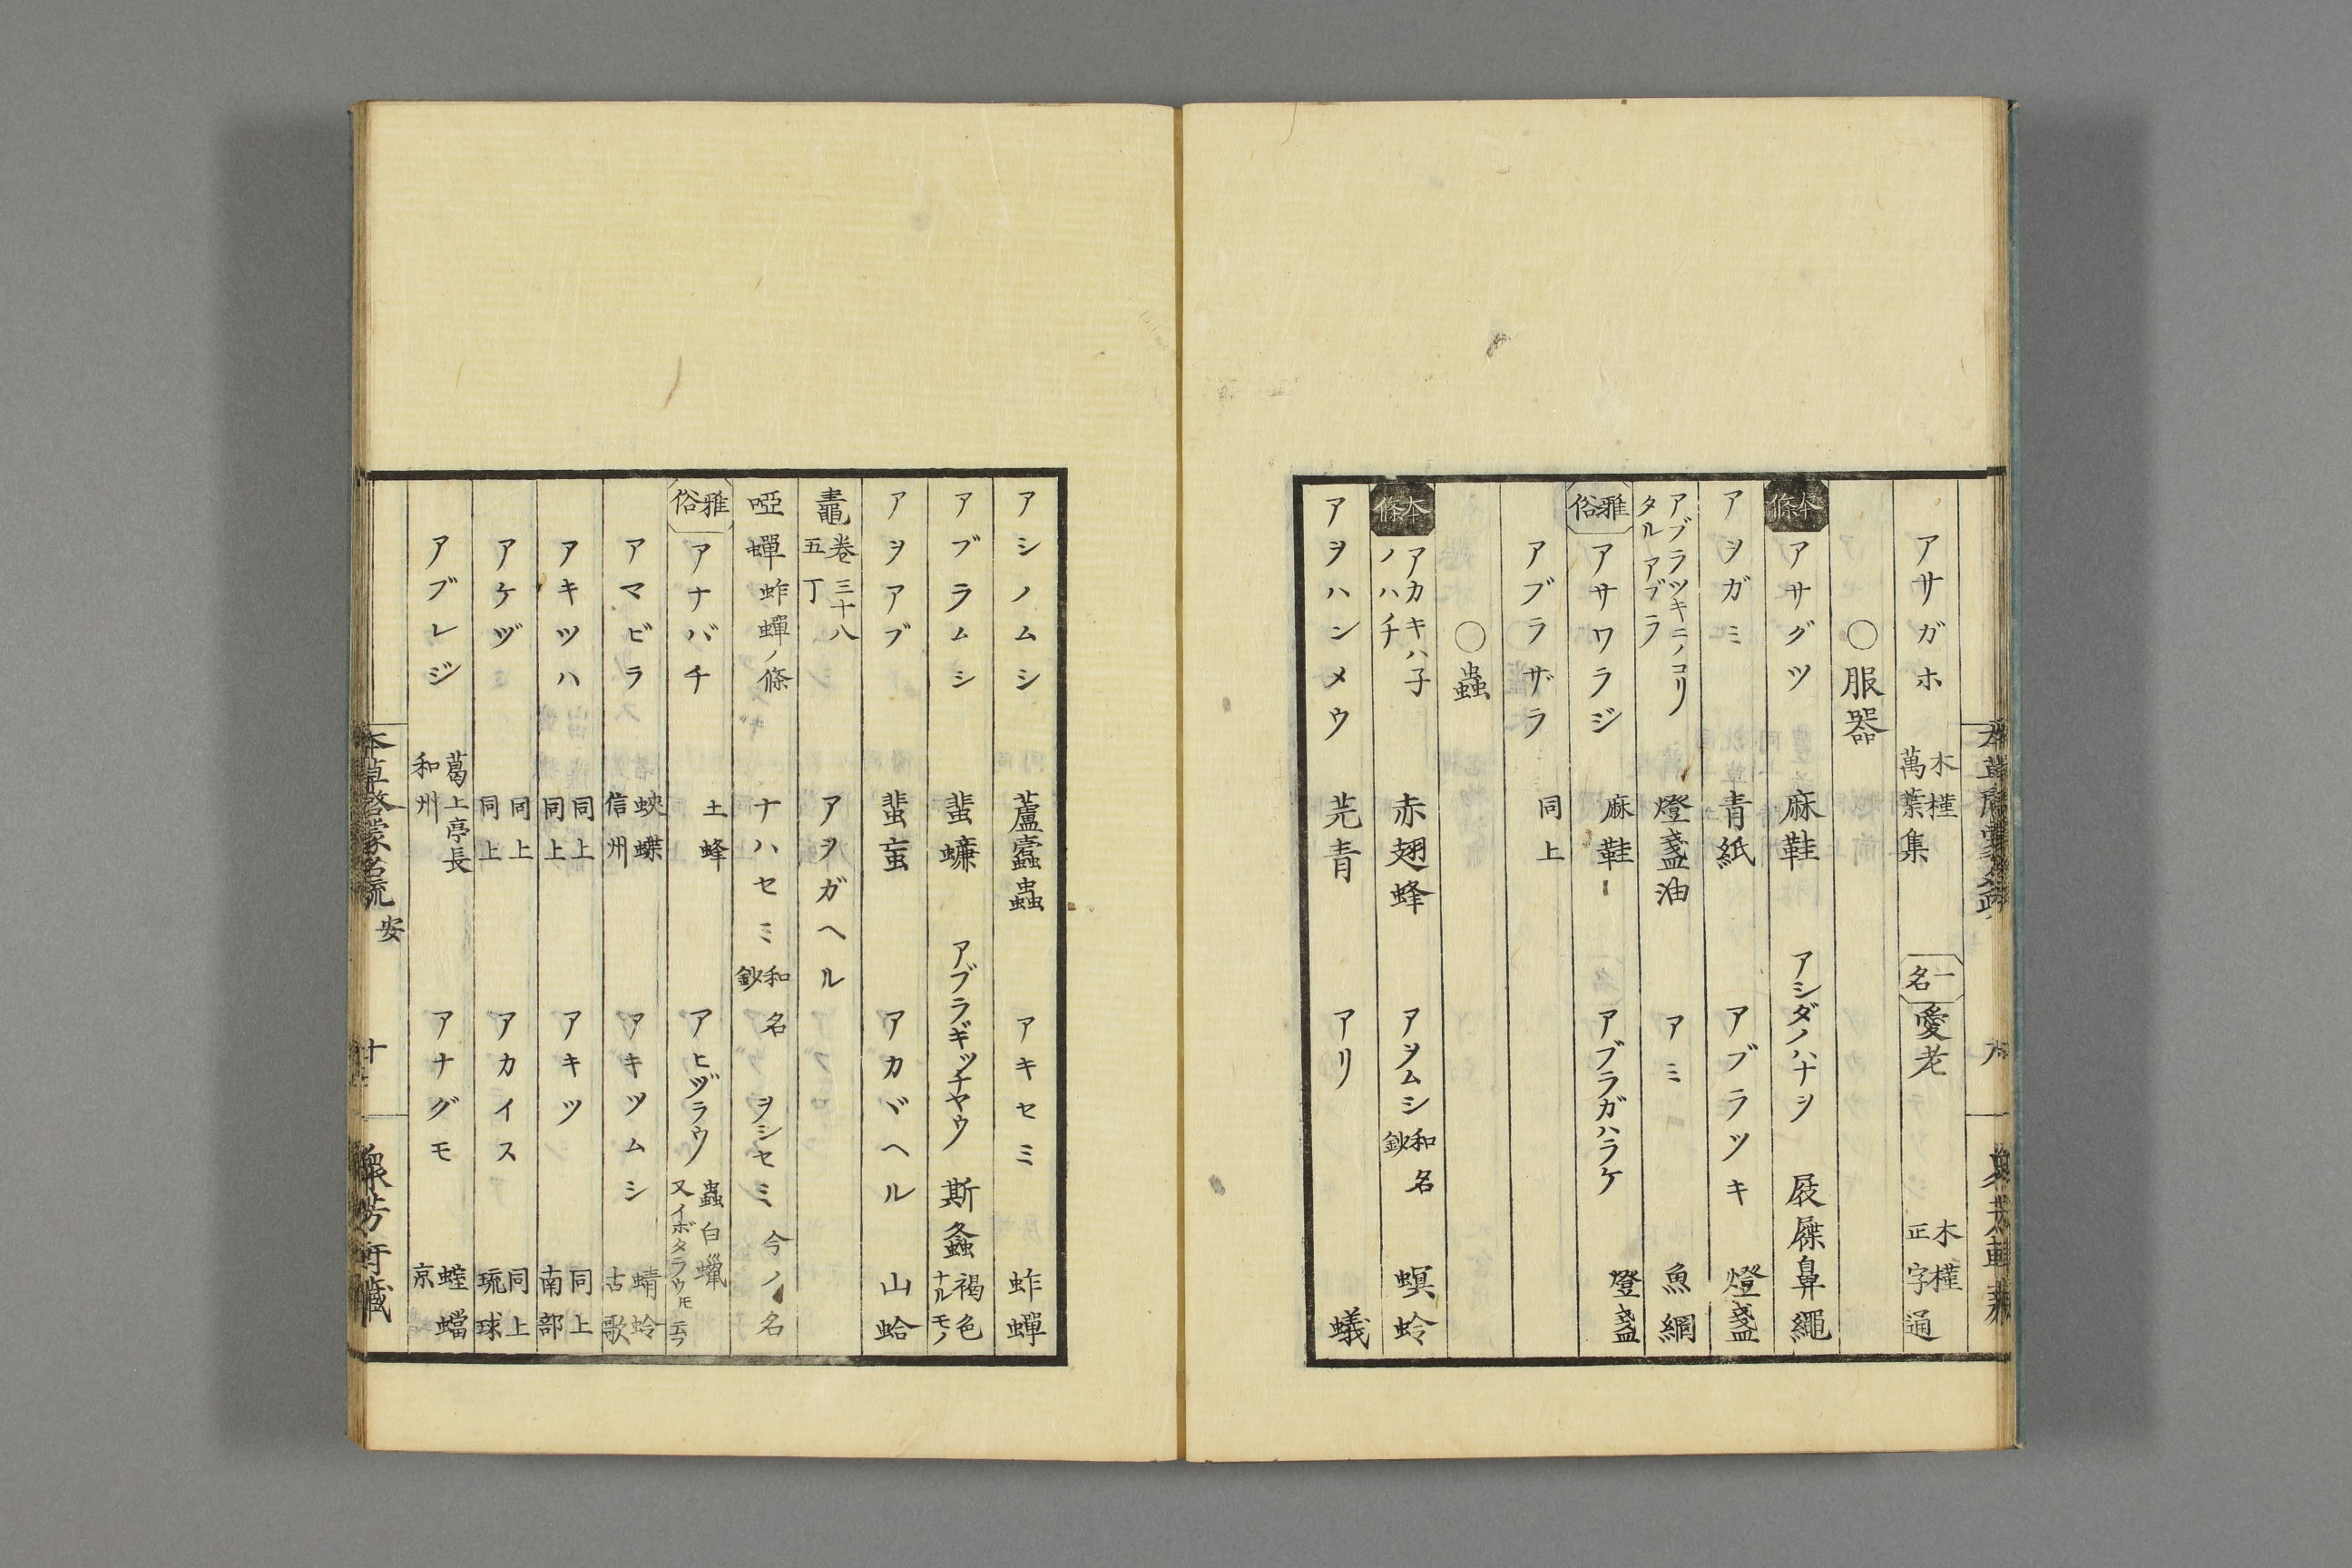 アサガホ 木槿 萬葉集 一名 愛老 木槿 正字通
○服器
本條 アサグツ 麻鞋 アシダノハナヲ 屐屧鼻繩
アヲガミ 青紙 アブラツキ 燈盞
アブラツキニノコリタルアブラ 燈盞油 アミ 魚網
雅俗 アサワラジ 麻鞋 アブラガハラケ 燈盞
アブラザラ 同上
○蟲
本條 アカキハ子ノハチ 赤翅蜂 アヲムシ 和名鈔 螟蛉
アヲハンメウ 芫青 アリ 蟻
アシノムシ 蘆蠹蟲 アキセミ 蚱蟬
アブラムシ 蜚蠊 アブラギッチヤウ 斯螽 褐色ナルモノ
アヲアブ 蜚䖟 アカヾヘル 山蛤
鼃 卷三十八 五丁 アヲガヘル
啞蟬 蚱蟬ノ條 ナハセミ 和名鈔 ヲシセミ 今ノ名
雅俗 アナバチ 土蜂 アヒヅラウ 蟲白蠟 又イボタラウモ云フ
アマビラ 蛺蝶 信州 アキツムシ 蜻蛉 古歌
アキツハ 同上 同上 アキツ 同上 南部
アケヅ 同上 同上 アカイス 同上 琉球
アブレジ 葛上亭長 和州 アナグモ 螲蟷 京
本草啓蒙名疏 安 十 衆芳軒藏